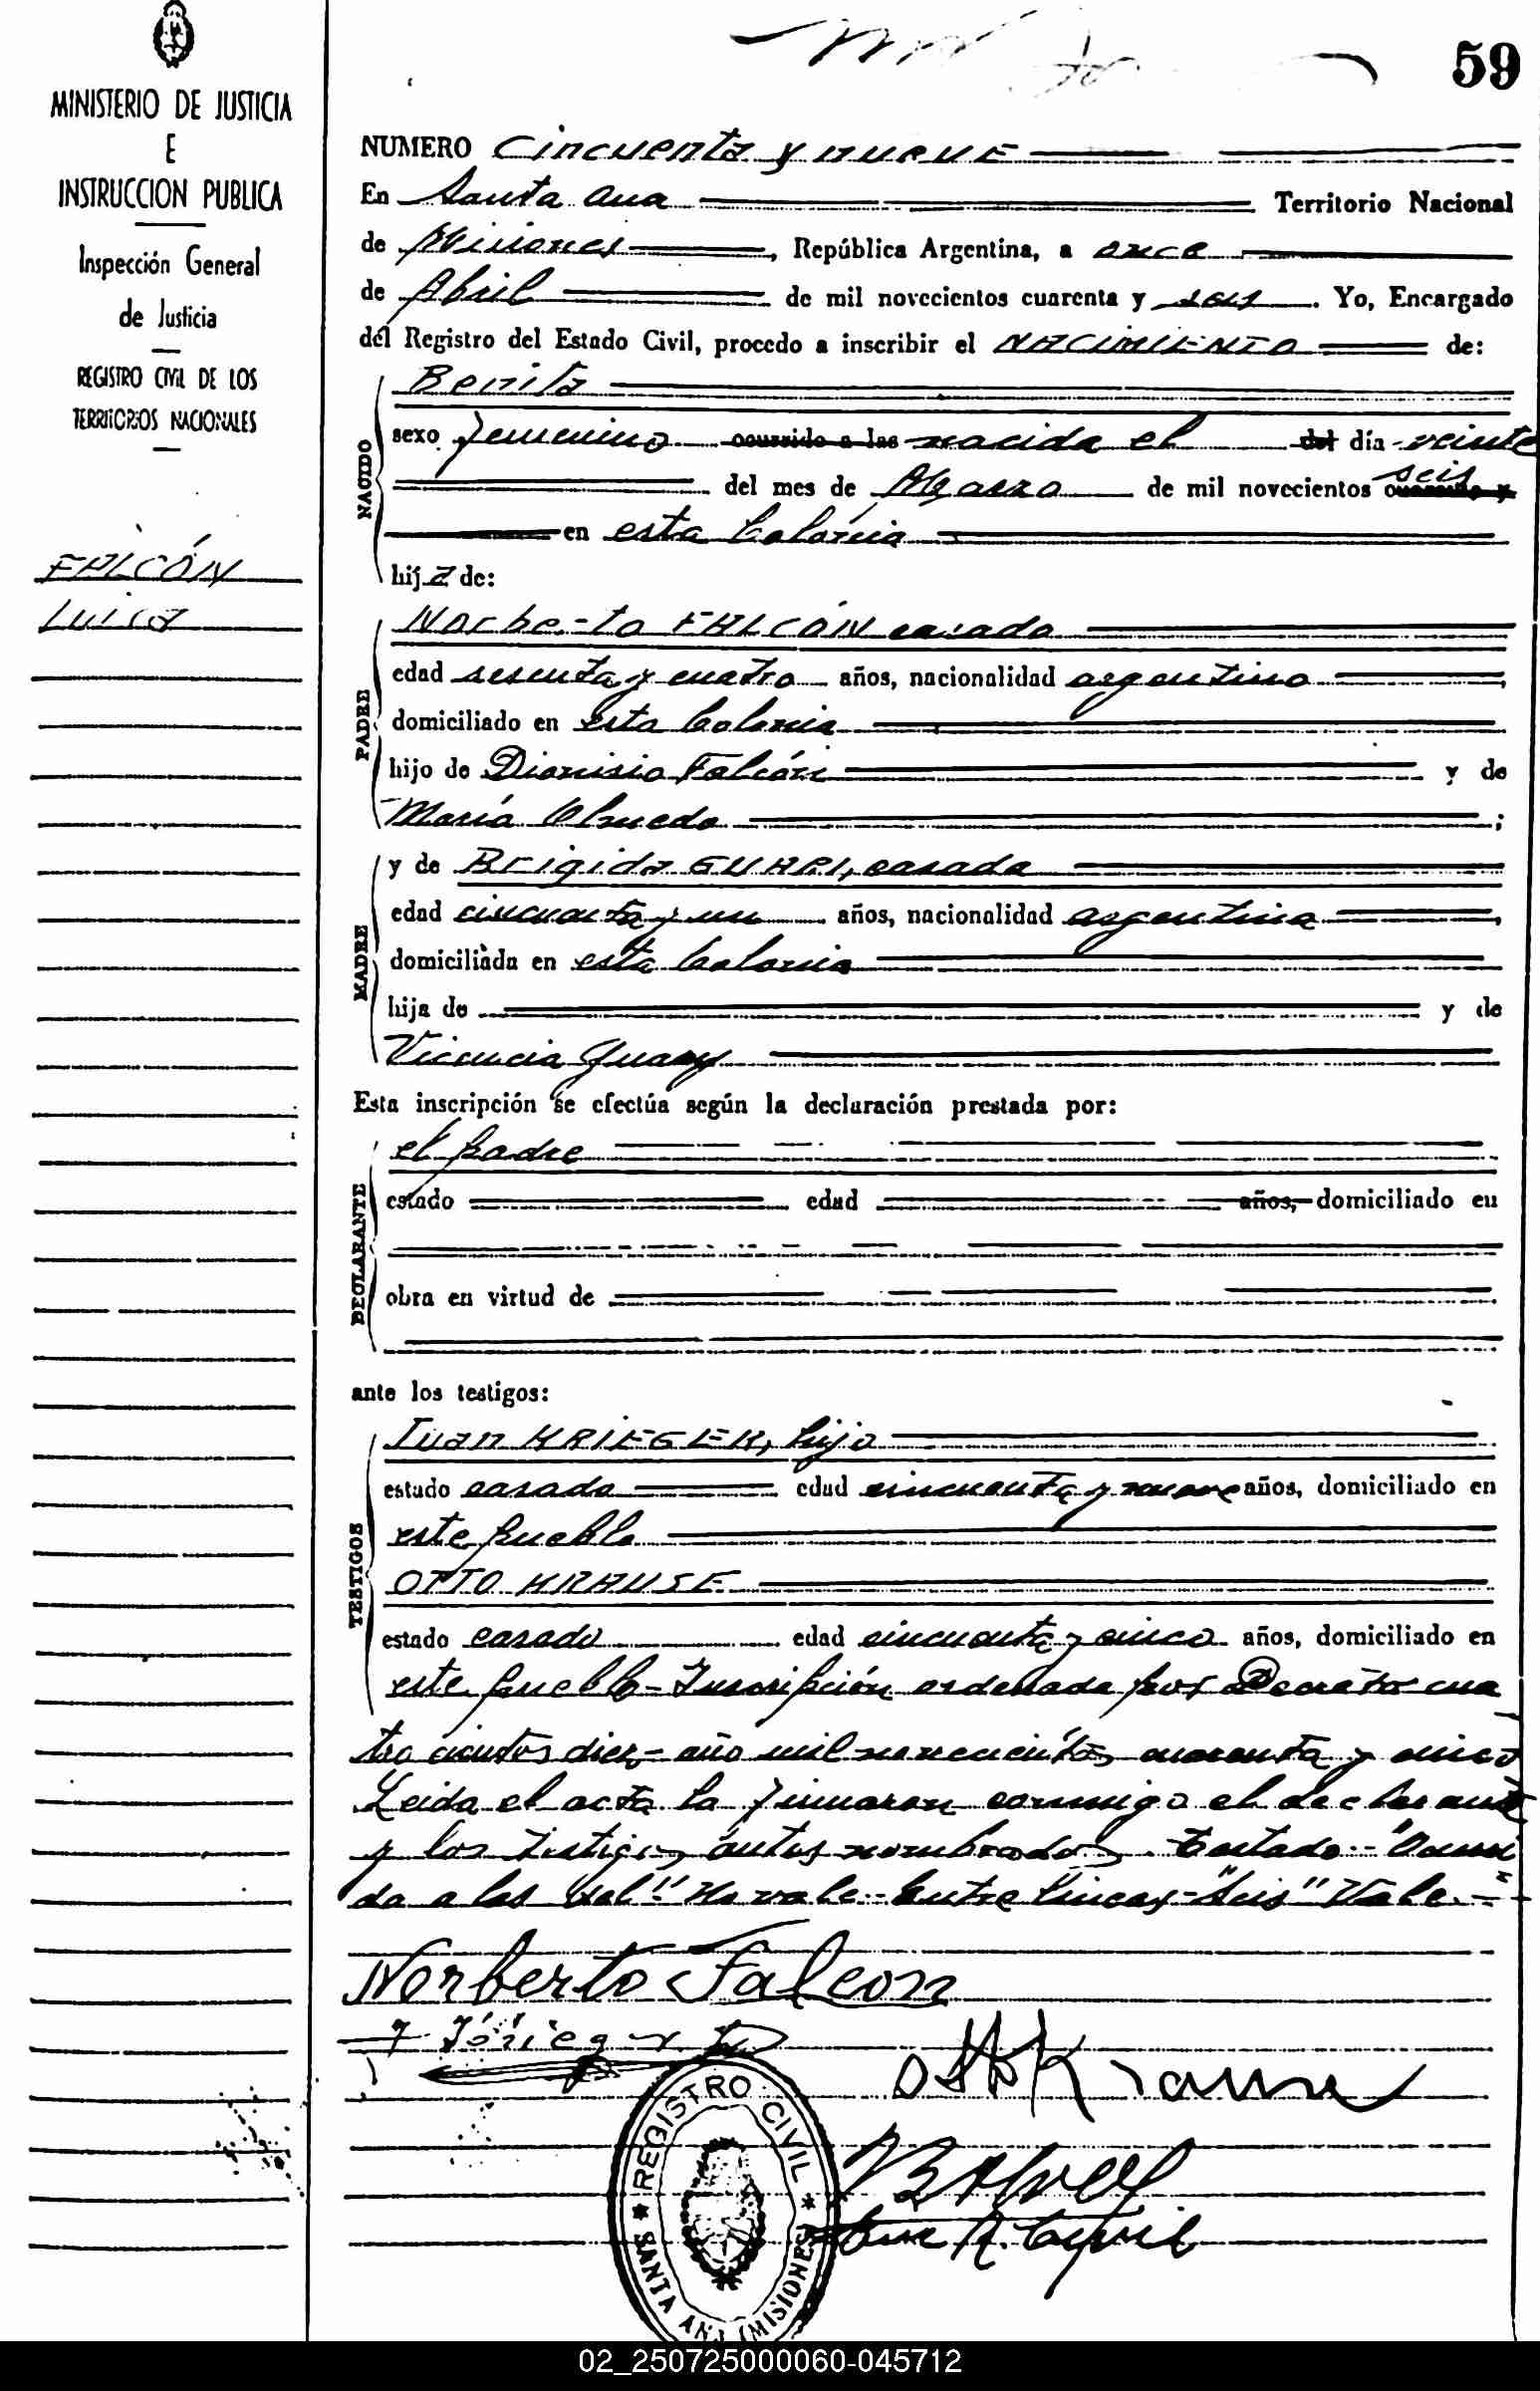 59
MINISTERIO DE JUSTICIA
E
INSTRUCCION PUBLICA
Inspección General
de Justicia
REGISTRO CIVIL DE LOS
TERRITORIOS NACIONALES
FALCÓN
Luisa
NUMERO Cincuenta y nueve
En Santa Ana Territorio Nacional
de Misiones, República Argentina, a once
de Abril de mil novecientos cuarenta y seis. Yo, Encargado
del Registro del Estado Civil, procedo a inscribir el NACIMIENTO de:
NACIDO
Benita
sexo femenino ocurrido a las nacida el del día veinte
del mes de Marzo de mil novecientos cuarenta y seis
en esta Colonia
hija de:
PADRE
Norberto FALCÓN casado
edad sesenta y cuatro años, nacionalidad argentino
domiciliado en esta Colonia
hijo de Dionisio Falcón y de
María Olmedo;
MADRE
y de Brigida GUARI, casada
edad cincuenta y un años, nacionalidad argentina,
domiciliada en esta Colonia
hija de y de
Vicencia Guary
Esta inscripción se efectúa según la declaración prestada por:
DECLARANTE
el padre
estado edad años, domiciliado en
obra en virtud de
ante los testigos:
TESTIGOS
Juan KRIEGER, hijo
estado casado edad cincuenta y nueve años, domiciliado en
este pueblo
OTTO KRAUSE
estado casado edad cincuenta y cinco años, domiciliado en
este pueblo - Inscripción ordenada por Decreto cua
tro cientos diez - año mil novecientos cuarenta y cinco
Leida el acta la firmaron conmigo el declarante
y los testigos antes nombrados. Testado - "Ocurri
do a las del" No vale - Entre lineas - "Seis" Vale. -
Norberto Falcon
J Krieger
Otto Krause
REGISTRO CIVIL
SANTA ANA (MISIONES)
02_250725000060-045712